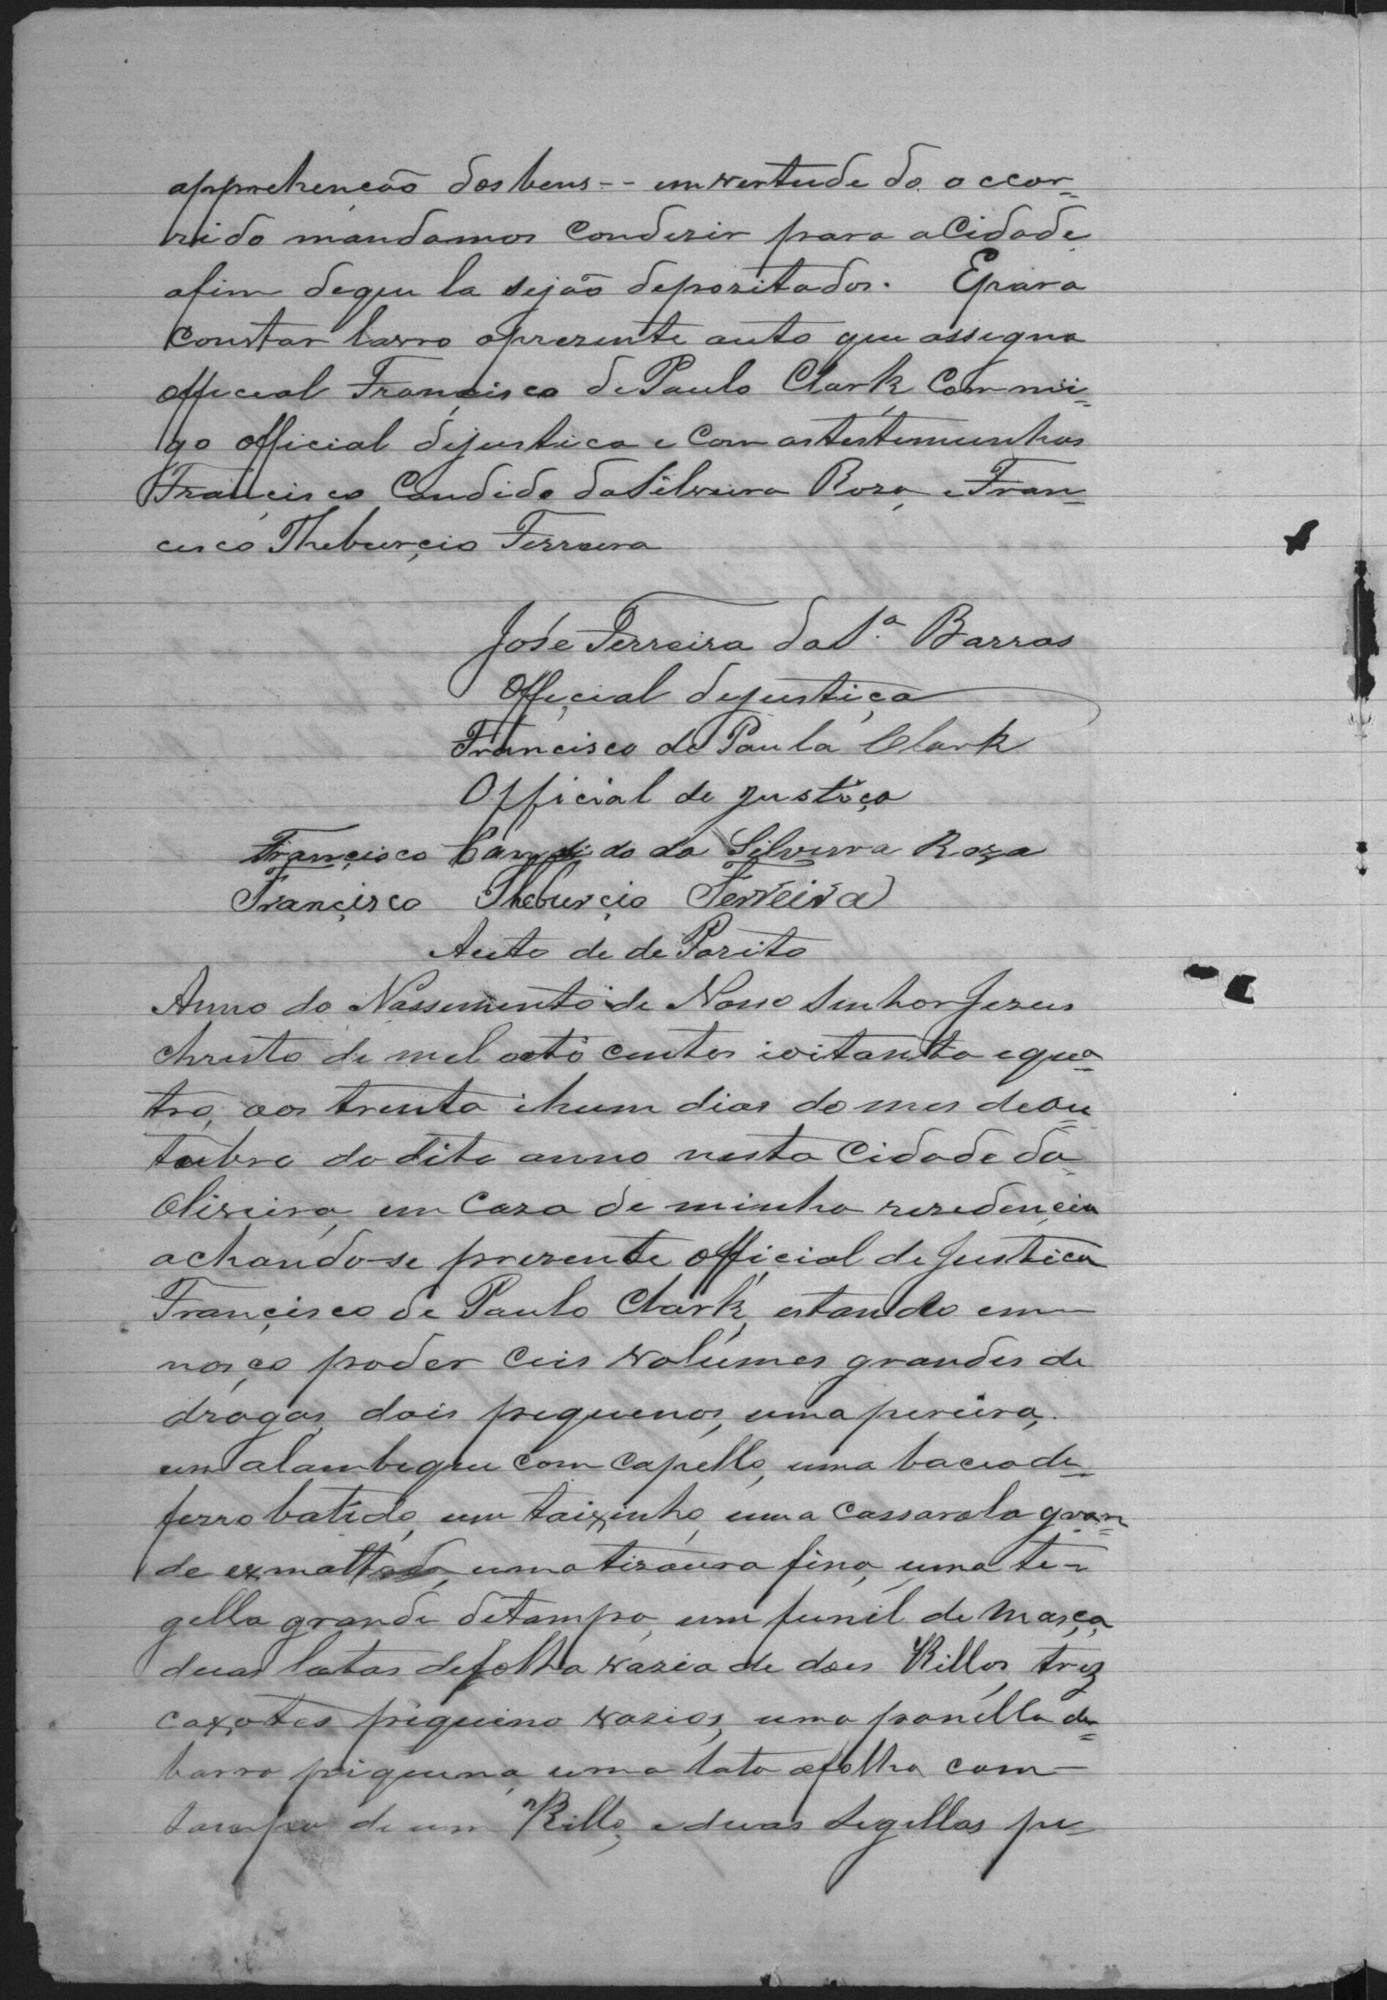 apprehenção dos bens -- em vertude do occor=
rido mandamos conduzir para a Cidade
afim de que la sejão depozitados. E para
constar lavro o prezente auto que assigna
official Francisco de Paulo Clark commi=
go official de justica e com as testemunhas
Francisco Candido da Silveira Roza, e Fran=
cisco Theburçio Ferreira
José Ferreira da S.ª Barros
Official de justiça
Francisco de Paula Clark
Official de justiça
Françisco Candido da Silveira Roza
Françisco Theburçio Ferreira
Auto de de Pozito
Anno do Nassemento de Nosso Senhor Jezus
Christo de mel oito centos i oitanta e qua=
tro, aos trenta i hum dias do mes de ou=
tubro do dito anno nesta Cidade da
Oliveira, em caza de minha rezedençia
achando-se prezente official de Justica
Françisco de Paulo Clark, estando em
nosço poder ceis volumes grandes de
drogas, dois pequenos, uma peneira,
um alambique com capello, uma bacia de=
ferro batido, um taixinho, uma cassarola gran=
de exmaltada, uma tizoura fina, uma te=
gella grande de tampa, um funil de masça,
duas latas de folha vazia de dois Killos, trez
caxotes piqueno vazios, uma panella de=
barro piquena, uma lata de folha com
tampa de um Killo, e duas tegellas pe=